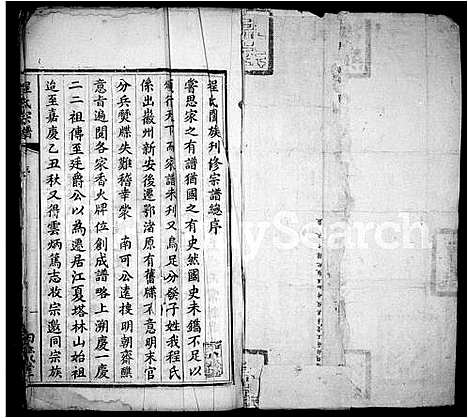 程氏闔族列修宗譜總序
嘗思家之有譜猶國之有史然國史未鐫不足以
行天下而家譜未列又烏足分發子姓我程氏
係出徽州新安後遷鄂渚原有舊牒不意明末官
分兵燹牒失難稽幸蒙南可公遠接明朝齋醮
意旨遍閱各家香火牌位創成譜略上溯慶一慶
二二祖傳至廷爵公以為遷居江夏塔林山始祖
迨至嘉慶乙丑秋又得雲炳篤志收宗邀同宗族
程氏宗譜
序
一
MySearch